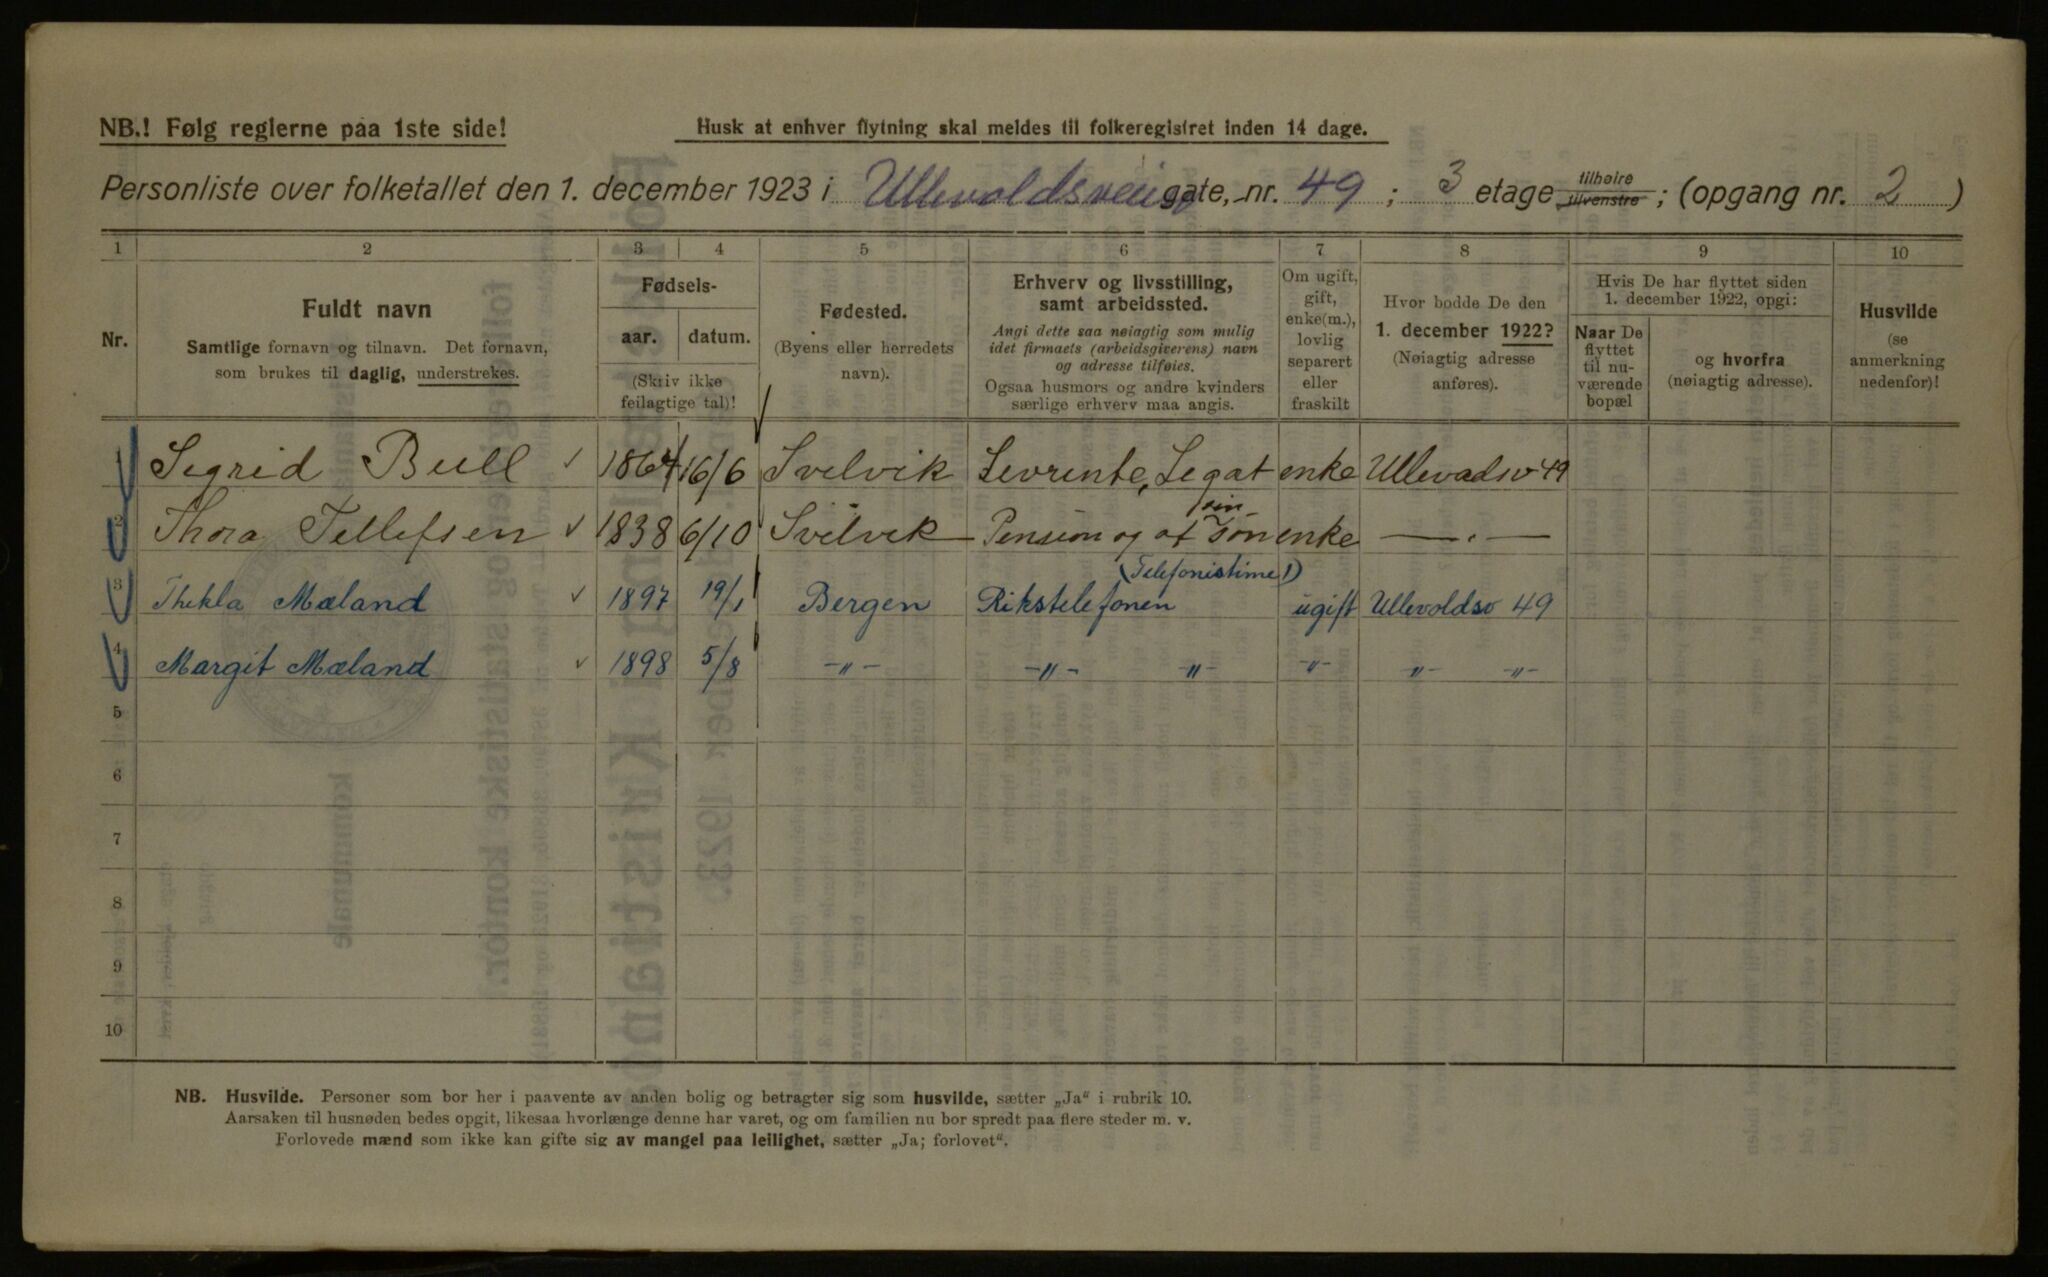 NB.! Følg reglerne paa 1ste side!
Husk at enhver flytning skal meldes til folkeregistret inden 14 dage.
Personliste over folketallet den 1. december 1923 i Ullevoldsveien gate, nr. 49 ; 3 etage tilhøire tilvenstre ; (opgang nr. 2 )
1 2 3 4 5 6 7 8 9 10
Nr.
Fuldt navn
Samtlige fornavn og tilnavn. Det fornavn,
som brukes til daglig, understrekes.
Fødsels-
aar. datum.
(Skriv ikke
feilagtige tal)!
Fødested.
(Byens eller herredets
navn).
Erhverv og livsstilling,
samt arbeidssted.
Angi dette saa nøiagtig som mulig
idet firmaets (arbeidsgiverens) navn
og adresse tilføies.
Ogsaa husmors og andre kvinders
særlige erhverv maa angis.
Om ugift,
gift,
enke(m.),
lovlig
separert
eller
fraskilt
Hvor bodde De den
1. december 1922?
(Nøiagtig adresse
anføres).
Hvis De har flyttet siden
1. december 1922, opgi:
Naar De
flyttet
til nu-
værende
bopæl
og hvorfra
(nøiagtig adresse).
Husvilde
(se
anmerkning
nedenfor)!
1 Sigrid Bull ✓ 1864 16/6 Svelvik Levrente, Legat enke Ullevadsv 49
2 Thora Tellefsen ✓ 1838 6/10 Svelvik Pension og af sin Søn enke —〃—
3 Thekla Mæland ✓ 1897 19/1 Bergen Rikstelefonen (Telefonistinne!) ugift Ullevoldsv 49
4 Margit Mæland ✓ 1898 5/8 -〃- -〃- -〃- -〃- -〃- -〃-
5
6
7
8
9
10
NB. Husvilde. Personer som bor her i paavente av anden bolig og betragter sig som husvilde, sætter „Ja“ i rubrik 10.
Aarsaken til husnøden bedes opgit, likesaa hvorlænge denne har varet, og om familien nu bor spredt paa flere steder m. v.
Forlovede mænd som ikke kan gifte sig av mangel paa leilighet, sætter „Ja; forlovet“.